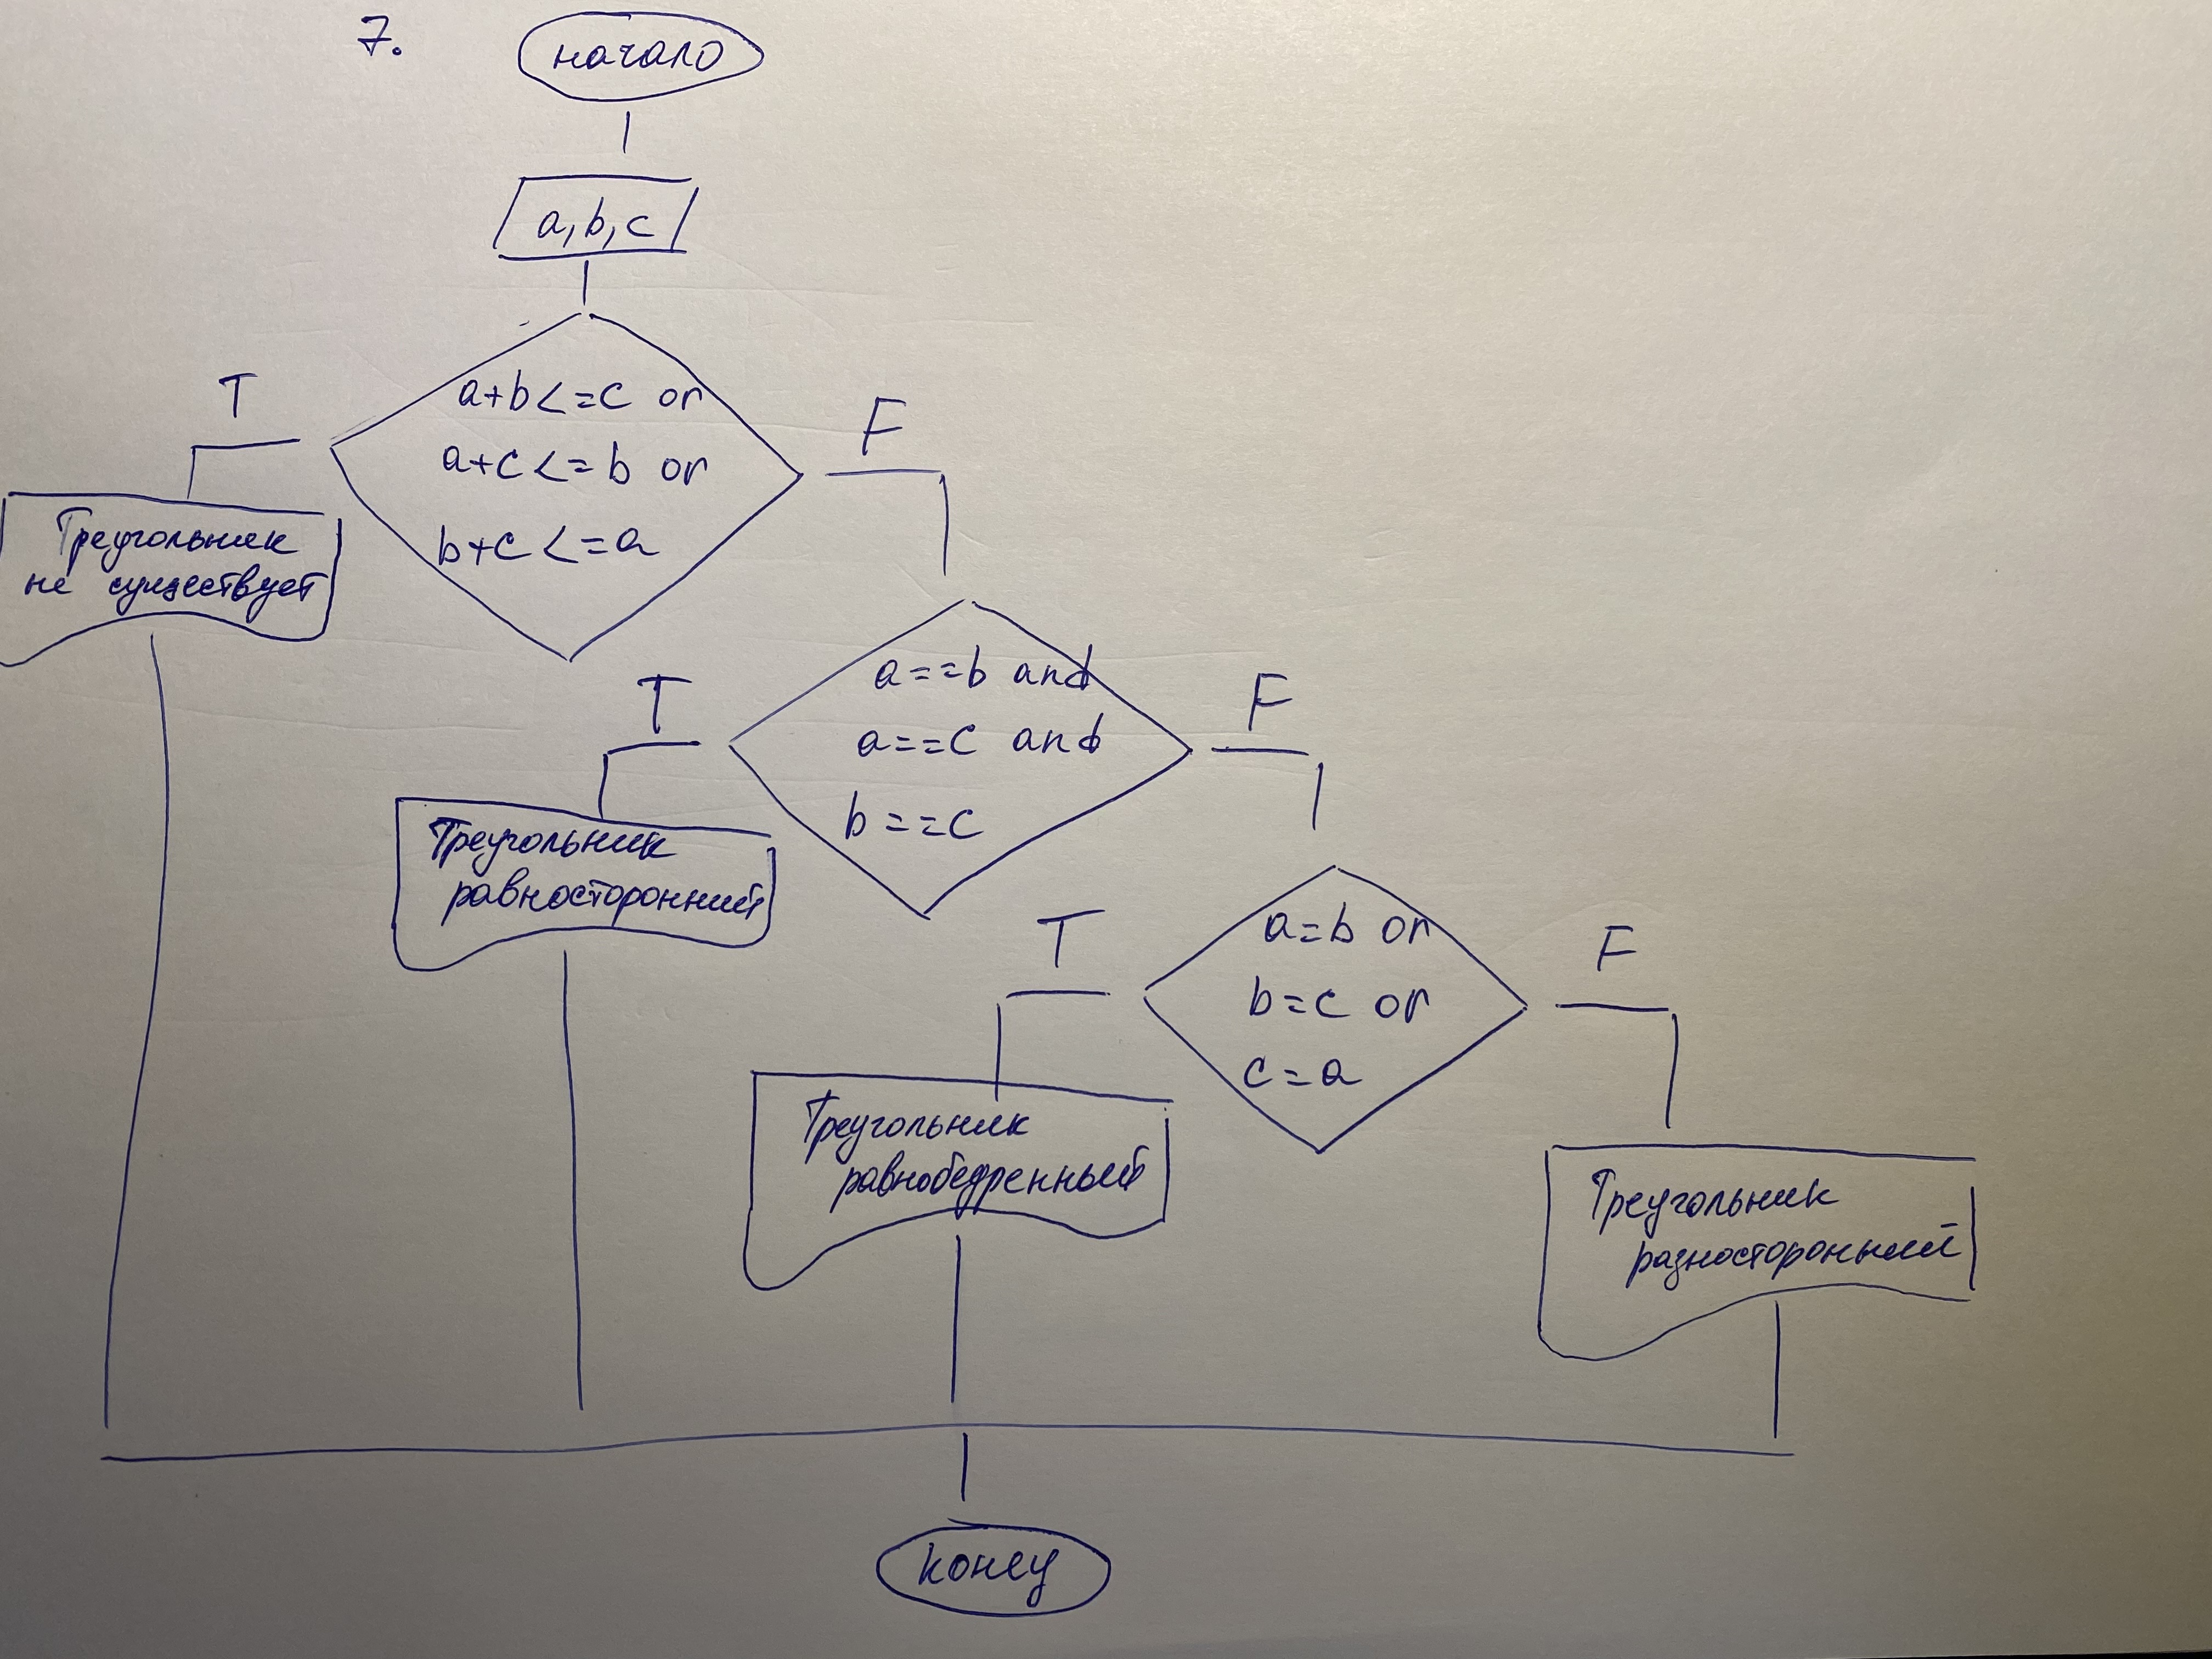 7.
начало
a,b,c
T
a+b<=c or
a+c<=b or
b+c<=a
F
Треугольник
не существует
T
a==b and
a==c and
b==c
F
Треугольник
равносторонний
T
a=b or
b=c or
c=a
F
Треугольник
равнобедренный
Треугольник
разносторонний
конец